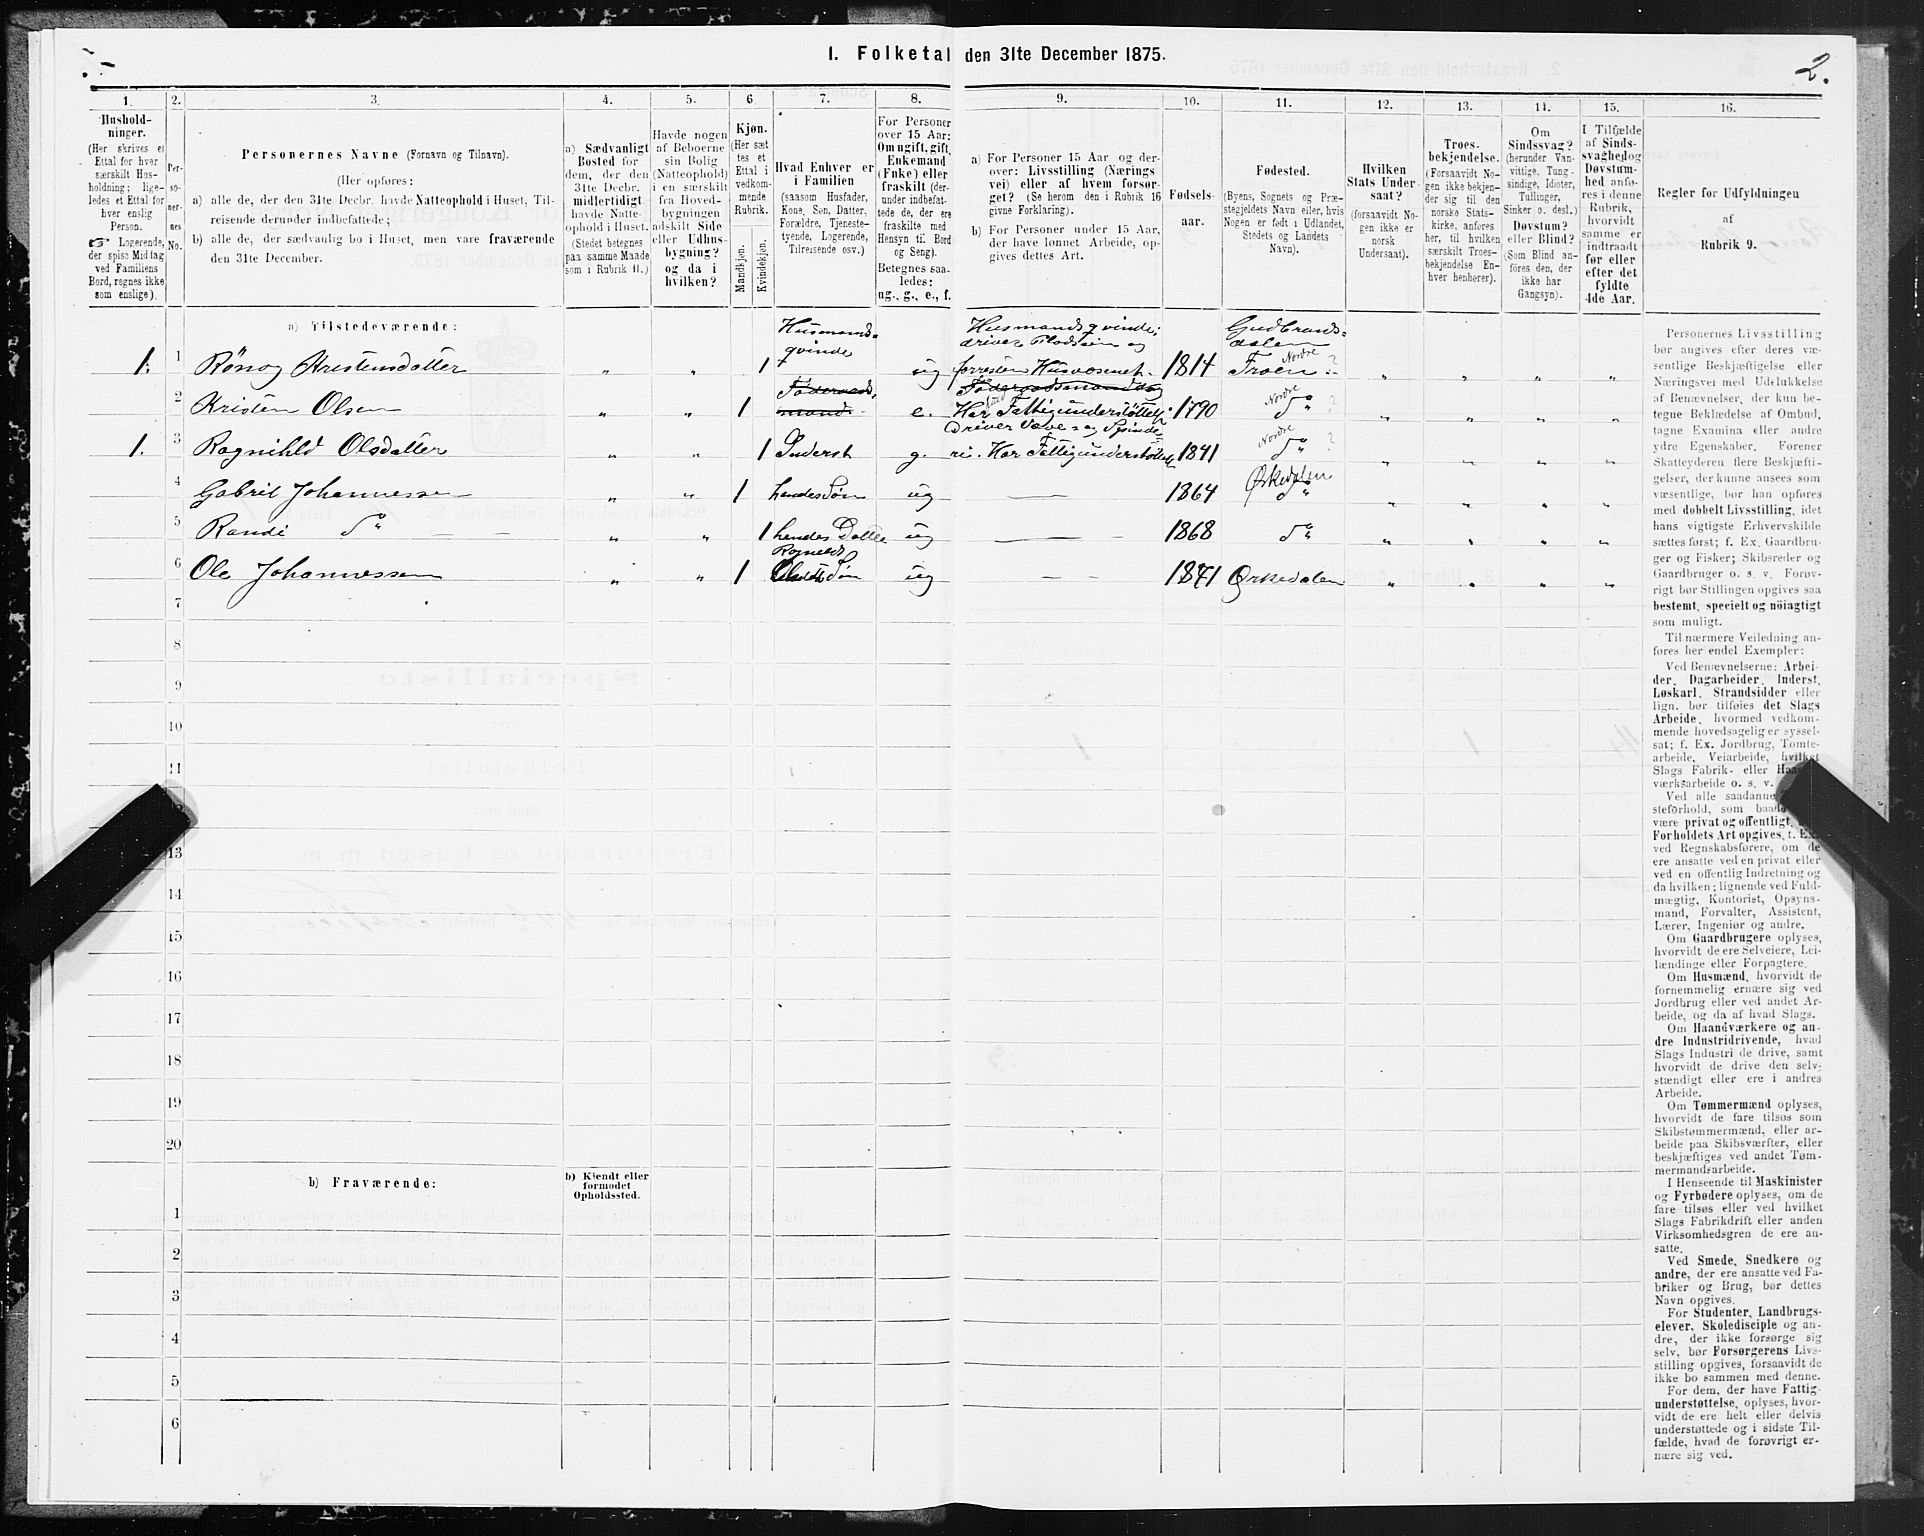 1. Folketal den 31te December 1875.
2.
1.
2.
3.
4.
5.
6
7.
8.
9.
10.
11.
12.
13.
14.
15.
16.
Hushold-
ninger.
(Her skrives et
Ettal for hver
særskilt Hus-
holdning; lige-
ledes et Ettal for
hver enslig
Person.
☞ Logerende,
der spise Middag
ved Familiens
Bord, regnes ikke
som enslige).
Per-
so-
ner-
nes
No.
Personernes Navne (Fornavn og Tilnavn).
(Her opføres:
a) alle de, der den 31te Decbr. havde Natteophold i Huset, Til-
reisende derunder indbefattede;
b) alle de, der sædvanlig bo i Huset, men vare fraværende
den 31te December.
a) Sædvanligt
Bosted for
dem, der den
31te Decbr.
midlertidigt
havde Natte-
ophold i Huset.
(Stedet betegnes
paa samme Maade
som i Rubrik 11.)
Havde nogen
af Beboerne
sin Bolig
(Natteophold)
i en særskilt
fra Hoved-
bygningen
adskilt Side
eller Udhus-
bygning?
og da i
hvilken?
Kjøn.
(Her sæt
tes et
Ettal i
vedkom-
mende
Rubrik.
Mandkjøn.
Kvindekjøn.
Hvad Enhver er
i Familien
(saasom Husfader,
Kone, Søn, Datter,
Forældre, Tjeneste-
tyende, Logerende,
Tilreisende osv.)
For Personer
over 15 Aar:
Om ugift, gift,
Enkemand
(Enke) eller
fraskilt (der-
under indbefat-
tede de, der ere
fraskilte med
Hensyn til Bord
og Seng).
Betegnes saa-
ledes:
ug., g., e., f.
a) For Personer 15 Aar og der-
over: Livsstilling (Nærings
vei) eller af hvem forsør-
get? (Se herom den i Rubrik 16
givne Forklaring).
b) For Personer under 15 Aar,
der have lønnet Arbeide, op-
gives dettes Art.
Fødsels-
aar.
Fødested.
(Byens, Sognets og Præ-
stegjeldets Navn eller, hvis
Nogen er født i Udlandet,
Stedets og Landets
Navn).
Hvilken
Stats Under-
saat?
(forsaavidt No-
gen ikke er
norsk
Undersaat).
Troes-
bekjendelse.
(Forsaavidt No-
gen ikke bekjen-
der sig til den
norske Stats-
kirke, anføres
her, til hvilken
særskilt Troes-
bekjendelse En-
hver henhører).
Om
Sindssvag?
(herunder Van-
vittige, Tung-
sindige, Idioter,
Tullinger,
Sinker o. desl.)
Døvstum?
eller Blind?
(Som Blind an-
føres den, der
ikke har
Gangsyn).
I Tilfælde
af Sinds-
svaghed og
Døvstum-
hed anfø-
res i denne
Rubrik,
hvorvidt
samme er
indtraadt
før eller
efter det
fyldte
4de Aar.
Regler for Udfyldningen
af
Rubrik 9.
a) Tilstedeværende:
1. 1 Rønog Kristensdatter „ „ 1 Husmands-
qvinde ug Husmandsqvinde;
driver Plads sin og
forresten Husvæsenet. 1814 Gudbrands-
dalen
Nordre Froen ? „ „ „ „
2 Kristen Olsen „ „ 1 Føderaads-
mand e. Føderaadsmand og
Har fuld Fattigunderstøttelse 1790 Nordre do ? „ „ „ „
1. 3 Ragnihld Olsdatter „ „ 1 Inderst g. Driver Væve- og Spinde-
ri. Har Fattigunderstøttelse 1841 Nordre do ? „ „ „ „
4 Gabriel Johannessen „ „ 1 hendes Søn ug — 1864 Ørkedalen do „ „ „ „
5 Randi do „ „ 1 hendes Datter ug — 1868 do „ „ „ „
6 Ole Johannessen „ „ 1 Ragnilds Søn ug — 1871 Ørkedalen „ „ „ „
7
8
9
10
11
12
13
14
15
16
17
18
19
20
b) Fraværende:
b) Kjendt eller
formodet
Opholdssted.
1
2
3
4
5
6
Personernes Livsstilling
bør angives efter deres væ-
sentlige Beskjæftigelse eller
Næringsvei med Udelukkelse
af Benævnelser, der kun be-
tegne Beklædelse af Ombud,
tagne Examina eller andre
ydre Egenskaber. Forener
Skatteyderen flere Beskjæfti-
gelser, der kunne ansees som
væsentlige, bør han opføres
med dobbelt Livsstilling, idet
hans vigtigste Erhvervskilde
sættes først; f. Ex. Gaardbru-
ger og Fisker; Skibsreder og
Gaardbruger o. s. v. Forøv-
rigt bør Stillingen opgives saa
bestemt, specielt og nöiagtigt
som muligt.
Til nærmere Veiledning an-
føres her endel Exempler:
Ved Benævnelserne: Arbei-
der, Dagarbeider, Inderst,
Løskarl, Strandsidder eller
lign. bør tilføies det Slags
Arbeide, hvormed vedkom-
mende hovedsagelig er syssel-
sat; f. Ex. Jordbrug, Tomte-
arbeide, Veiarbeide, hvilket
Slags Fabrik- eller Haand-
værksarbeide o. s. v.
Ved alle saadanne
steforhold, som baade
være privat og offentligt,
Forholdets Art opgives, t. Ex.
ved Regnskabsførere, om de
ere ansatte ved en privat eller
ved en offentlig Indretning og
da hvilken; lignende ved Fuld-
mægtig, Kontorist, Opsyns-
mand, Forvalter, Assistent,
Lærer, Ingeniør og andre.
Om Gaardbrugere oplyses,
hvorvidt de ere Selveiere, Lei-
lændinge eller Forpagtere.
Om Husmænd, hvorvidt de
fornemmelig ernære sig ved
Jordbrug eller ved andet Ar-
beide, og da af hvad Slags.
Om Haandværkere og an-
dre Industridrivende, hvad
Slags Industri de drive, samt
hvorvidt de drive den selv-
stændigt eller ere i andres
Arbeide.
Om Tømmermænd oplyses,
hvorvidt de fare tilsøs som
Skibstømmermænd, eller ar-
beide paa Skibsværfter, eller
beskjæftiges ved andet Tøm-
mermandsarbeide.
I Henseende til Maskinister
og Fyrbødere oplyses, om de
fare tilsøs eller ved hvilket
Slags Fabrikdrift eller anden
Virksomhedsgren de ere an-
satte.
Ved Smede, Snedkere og
andre, der ere ansatte ved Fa-
briker og Brug, bør dettes
Navn opgives.
For Studenter, Landbrugs-
elever, Skoledisciple og an-
dre, der ikke forsørge sig
selv, bør Forsørgerens Livs-
stilling opgives, forsaavidt de
ikke bo sammen med denne.
For dem, der have Fattig-
understøttelse, oplyses, hvor-
vidt de ere helt eller delvis
understøttede og i sidste Til-
fælde, hvad de forøvrigt er-
nære sig ved.